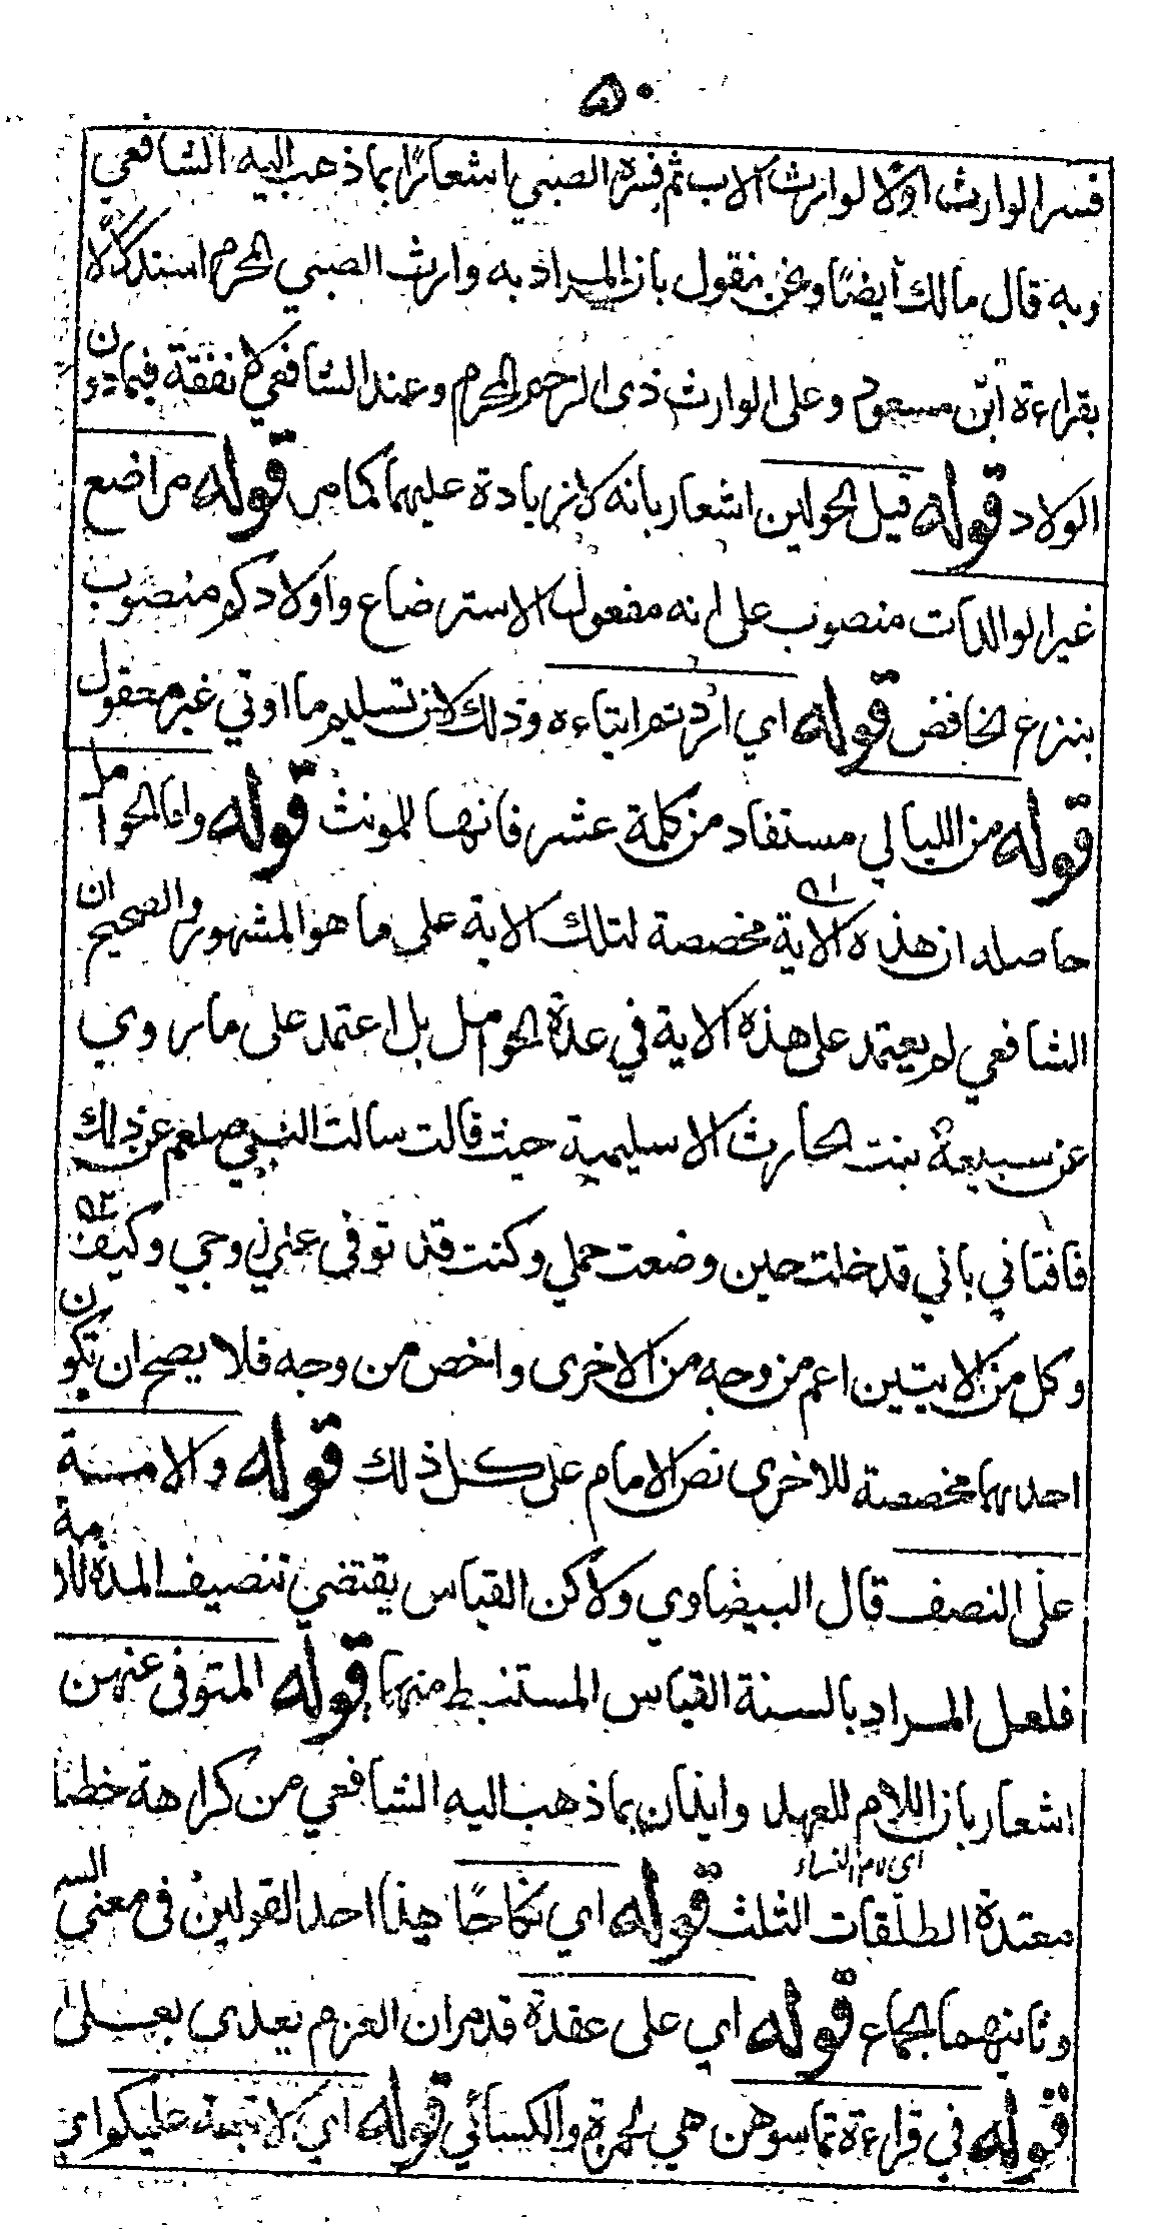 ٥٠
فسر الوارث اولا لوارث الاب ثم فسره الصبي اشعارًا بما ذهب اليه الشافعي
وبه قال مالك أيضًا ونحن نقول بان المراد به وارث الصبي المحرم استدلالًا
بقراءة ابن مسعود وعلى الوارث ذى الرحم المحرم وعند الشافعي لا نفقة فيما دون
الولاد قوله قبل الحولين اشعار بانه لا زيادة عليهما كما مر قوله مراضع
غير الوالدات منصوب على انه مفعول الاسترضاع واولادكم منصوب
بنزع الخافض قوله اي اردتم ايتاءه وذلك لان تسليم ما اوتي غير معقول
قوله من الليالي مستفاد من كلمة عشر فانها للمونث قوله واما الحوامل
حاصله ان هذه الاية مخصصة لتلك الاية على ما هو المشهور والصحيح ان
الشافعي لم يعتمد على هذه الاية في عدة الحوامل بل اعتمد على ما روي
عن سبيعة بنت الحارث الاسليمية حيث قالت سالت النبي صلعم عن ذلك
فافتاني باني قد حللت حين وضعت حملي وكنت قد توفى عني زوجي وكيف
وكل من الايتين اعم من وجه من الاخرى واخص من وجه فلا يصح ان تكون
احديهما مخصصة للاخرى نص الامام على كل ذلك قوله والامة
على النصف قال البيضاوي ولاكن القياس يقتضي تنصيف المدة للامة
فلعل المراد بالسنة القياس المستنبط منها قوله المتوفى عنهن
اشعار بان اللام للعهد وايذان بما ذهب اليه الشافعي من كراهة خطبة
اى لام النساء
معتدة الطلقات الثلث قوله اي نكاحًا هذا احد القولين فى معنى السر
وثانيهما الجماع قوله اي على عقدة قد مر ان العزم يعدي بعلى
قوله في قراءة تماسوهن هي لحمزة والكسائي قوله اي لا تبعة عليكم اي